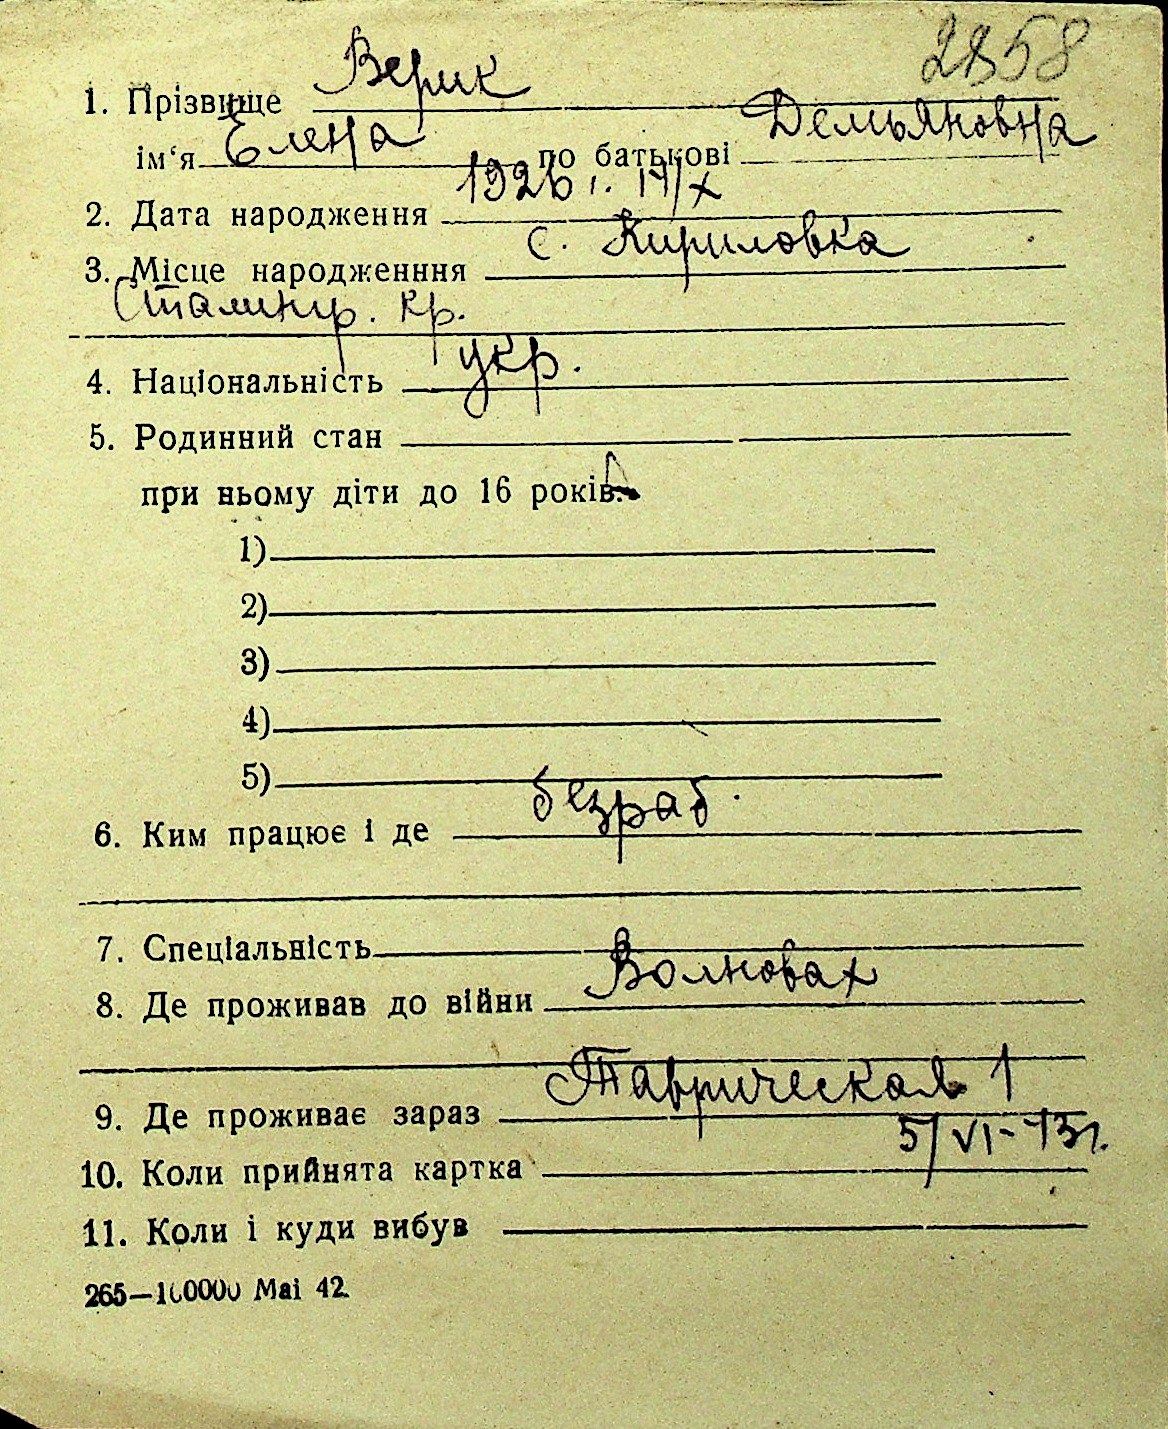 2858
1. Прізвище Верик
ім'я Елена по батькові Демьяновна
2. Дата народження 1926 г. 14/X
3. Місце народженння с. Кириловка
Сталинр. кр.
4. Національність укр.
5. Родинний стан
при ньому діти до 16 років.
1)
2)
3)
4)
5)
6. Ким працює і де безраб.
7. Спеціальність
8. Де проживав до війни Волновах
9. Де проживає зараз Таврическая 1
10. Коли прийнята картка 5/VI-43г.
11. Коли і куди вибув
265—100000 Mai 42.